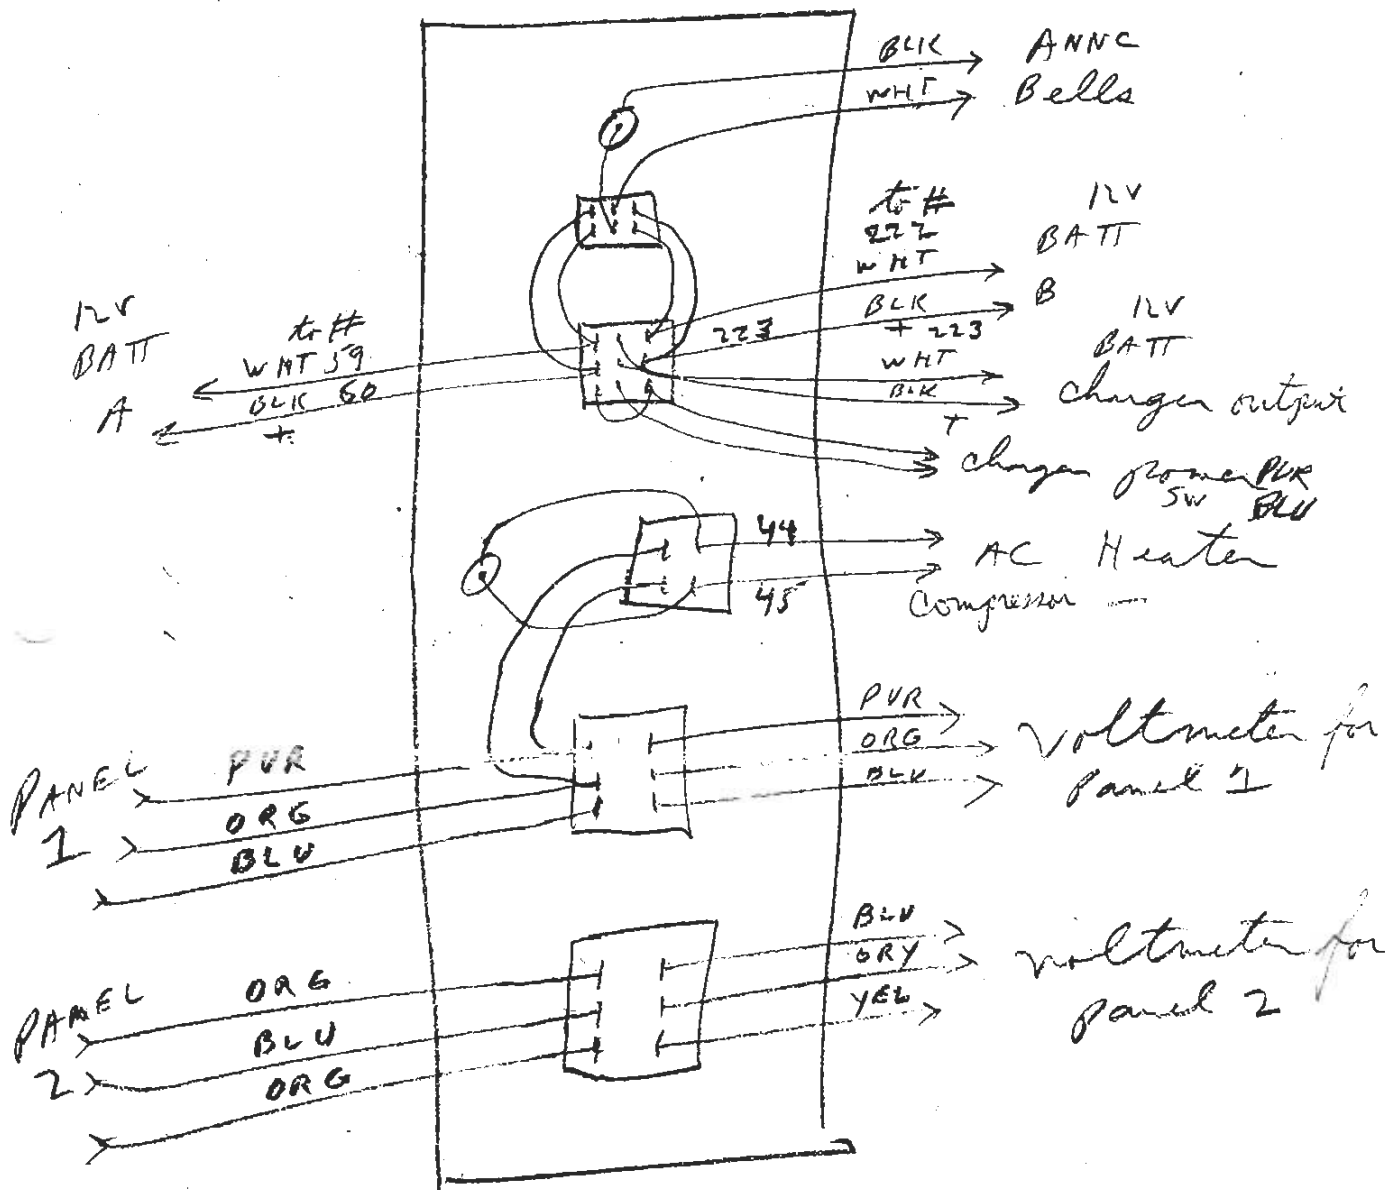 BLK
ANNC
WHT
Bells
to #
222
WHT
12V
BATT
B
BLK
+ 223
223
12V
BATT
A
to #
WHT 59
BLK 60
+
12V
BATT
WHT
BLK
+
charger output
charger power PUR
SW BLU
44
AC Heater
45
Compressor —
PUR
ORG
BLU
Voltmeter for
Panel 1
PANEL
1
PUR
ORG
BLU
BLU
GRY
YEL
voltmeter for
panel 2
PANEL
2
ORG
BLU
ORG